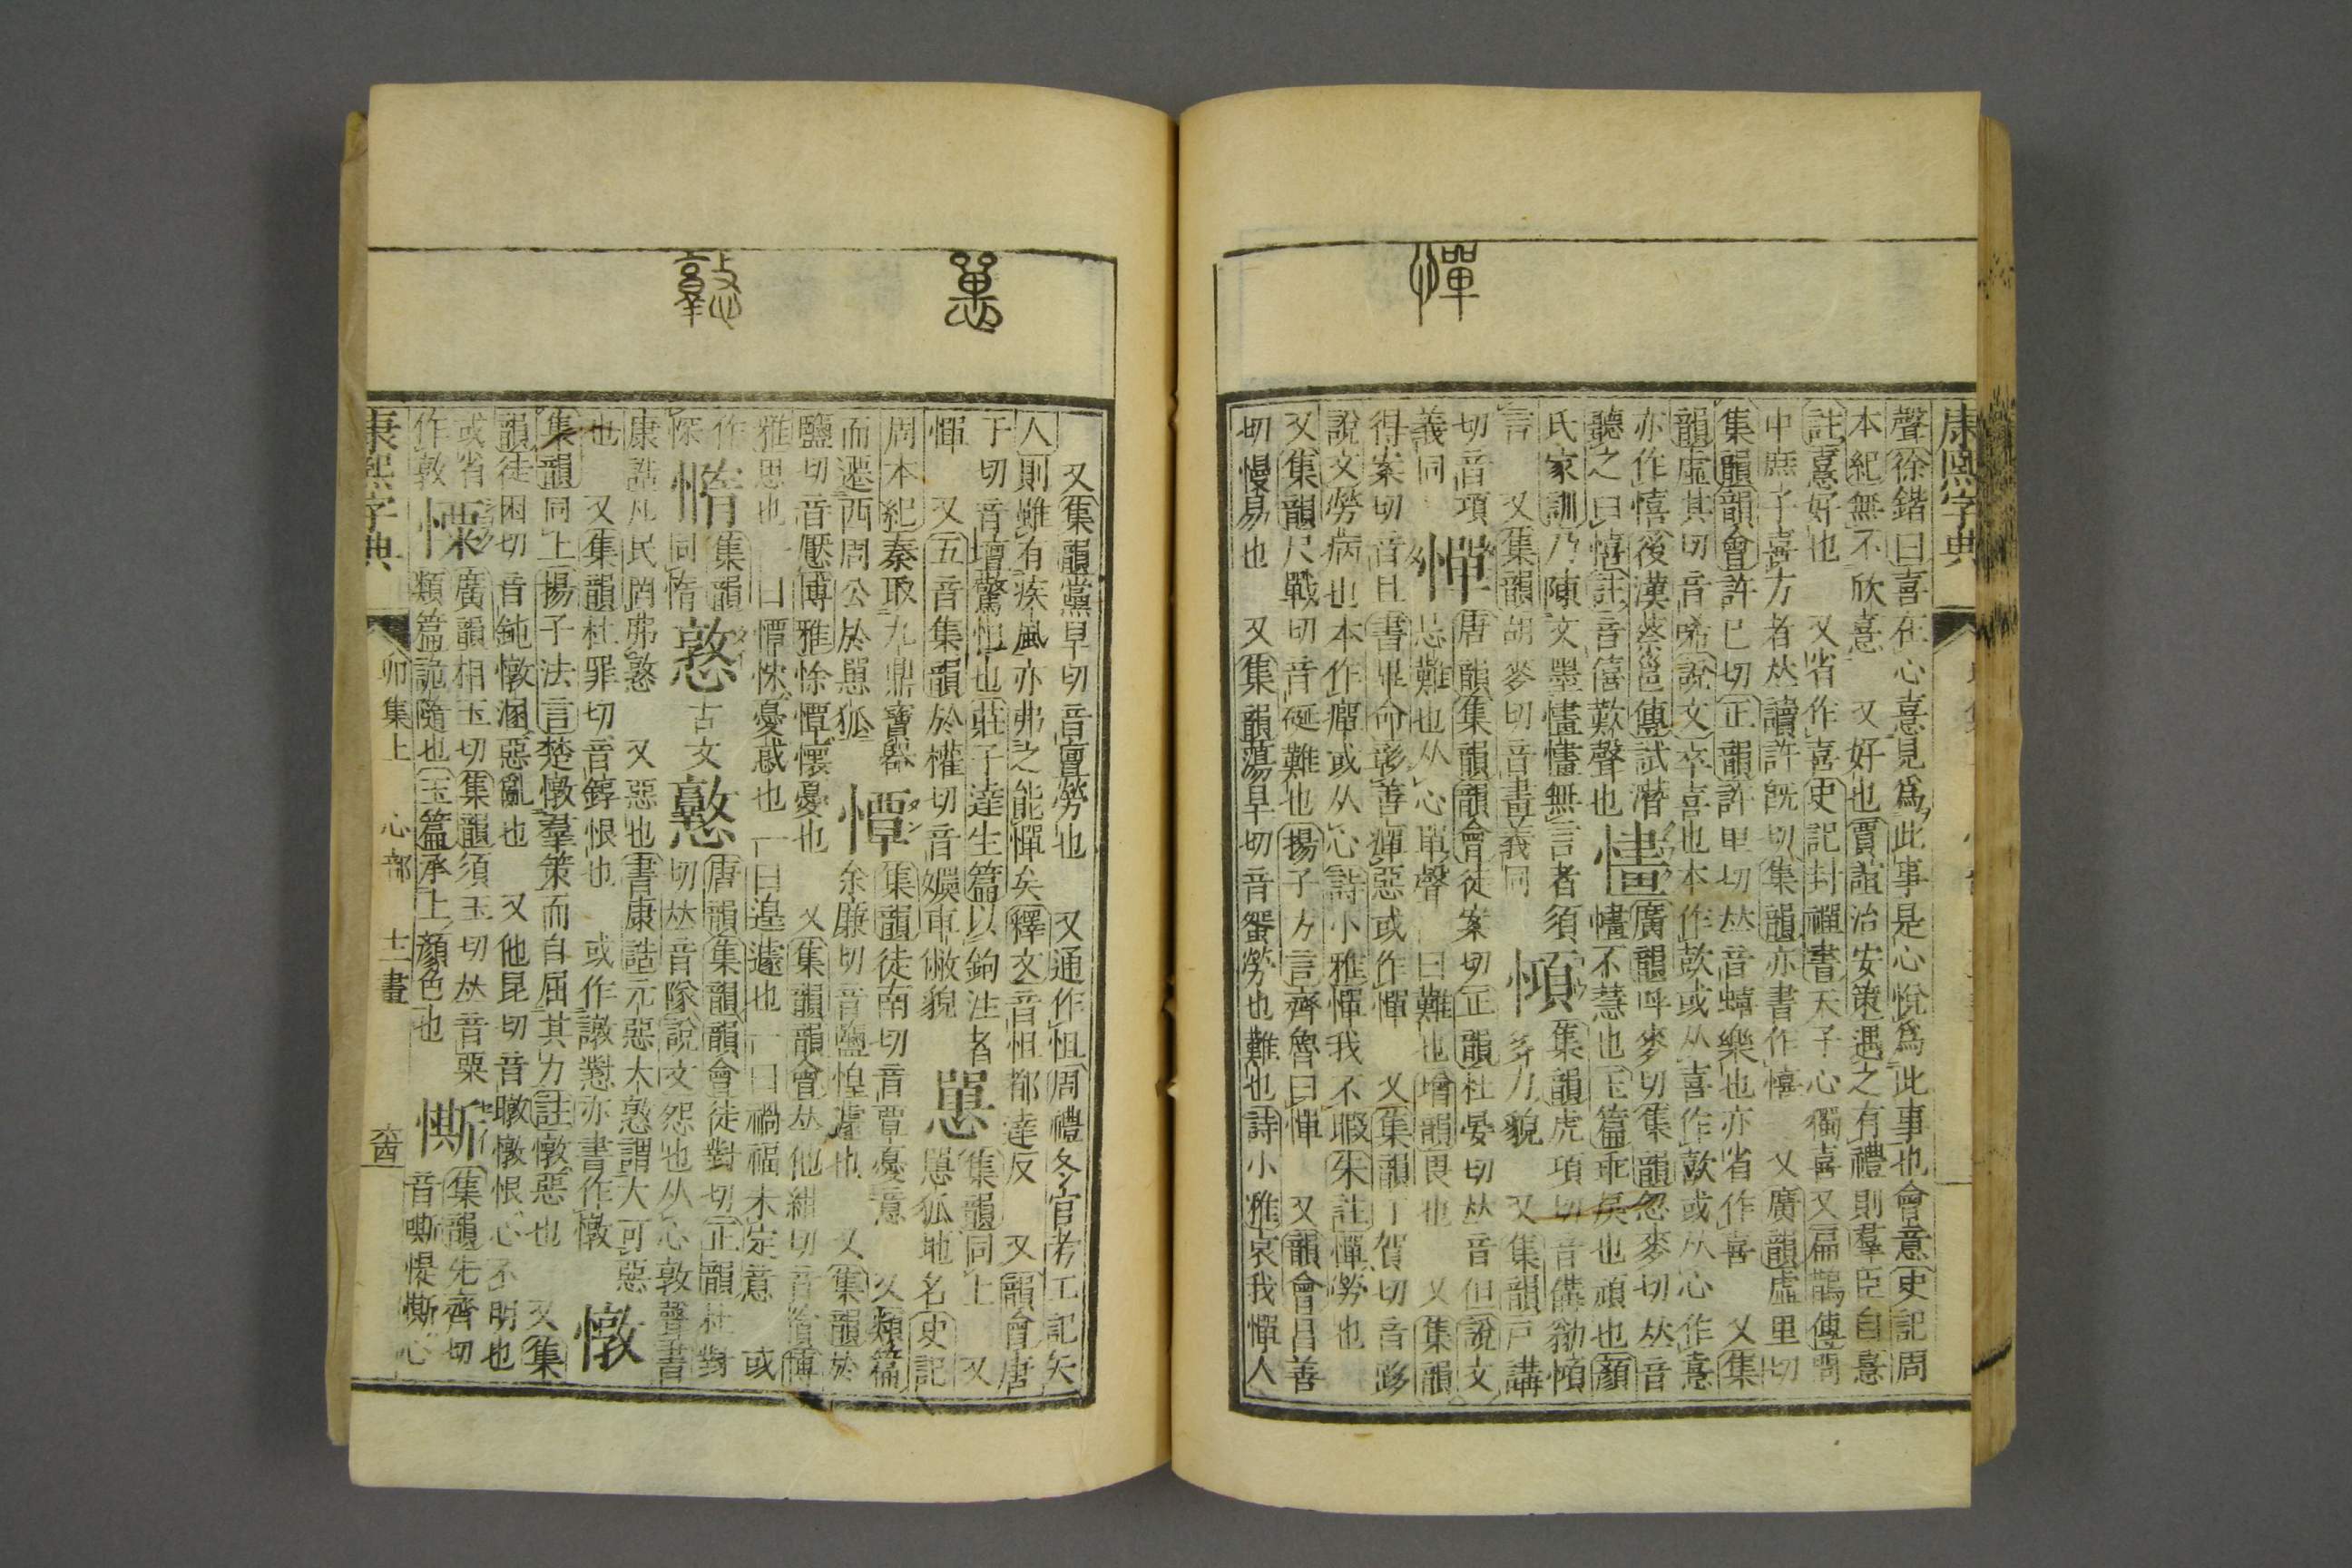 憚
康熙字典
聲徐鍇曰喜在心憙見爲此事是心悅爲此事也會意史記周
本紀無不欣憙　又好也賈誼治安策遇之有禮則羣臣自憙
註憙好也　又省作喜史記封禪書天子心獨喜又扁鵲傳
中庶子喜方者𠀤讀許旣切集韻亦書作憘　又廣韻虛里切
集韻韻會許已切正韻許里切𠀤音蟢樂也亦省作喜　又集
韻虛其切音唏說文卒喜也本作歖或从喜作歖或从心作憙
亦作憘後漢蔡邕傳試潛
聽之曰憘註音僖歎聲也　懂廣韻呼麥切集韻忽麥切𠀤音
懂不慧也玉篇乖戾也頑也顏
氏家訓乃陳文墨懂懂無言者須　集韻虎項切音備
言　又集韻胡麥切音畫義同　多力貌　又集韻戸講
切音項　憚唐韻集韻韻會徒案切正韻杜晏切𠀤音但說文
義同　忌難也从心單聲一曰難也增韻畏也　又集韻
得案切音旦書畢命彰善癉惡或作憚　又集韻丁賀切音跢
說文勞病也本作癉或从心詩小雅憚我不暇朱註憚勞也
又集韻尺戰切音硟難也揚子方言齊魯曰憚　又韻會昌善
切慢易也　又集韻蕩旱切音蜑勞也難也詩小雅哀我憚人
憝
又集韻黨旱切音亶勞也　又通作怛周禮冬官考工記矢
人則雖有疾風亦弗之能憚矣釋文音怛都達反　又韻會唐
干切音壇驚怛也莊子達生篇以鉤注者　集韻同上　又
憚　又五音集韻於權切音嬽車敝貌　㥛狐地名史記
周本紀秦取九鼎寶器　憛集韻徒南切音覃憂意　又類篇
而遷西周公於㥛狐　余廉切音鹽惶遽也　又集韻於
鹽切音懕博雅悇憛懷憂也　又集韻韻會𠀤他紺切音撢博
雅思也一曰憛悇憂惑也一曰遑遽也一曰禍福未定意　或
作　憜集韻　憝古文憝唐韻集韻韻會徒對切正韻杜對
㥾　同惰　切𠀤音隊說文怨也从心敦聲書
康誥凡民罔弗憝　又惡也書康誥元惡大憝謂大可惡
也　又集韻杜罪切音錞恨也　或作譈懟亦書作憞　憞
集韻同上揚子法言楚憞羣策而自屈其力註憞惡也　又集
韻徒困切音鈍憞溷惡亂也　又他昆切音暾憞恨心不明也
或省　憡廣韻相玉切集韻須玉切𠀤音粟　㒋集韻先齊切
作敦　類篇詭隨也玉篇承上顏色也　音嘶㥴㒋心
康熙字典　卯集上　心部　十二畫